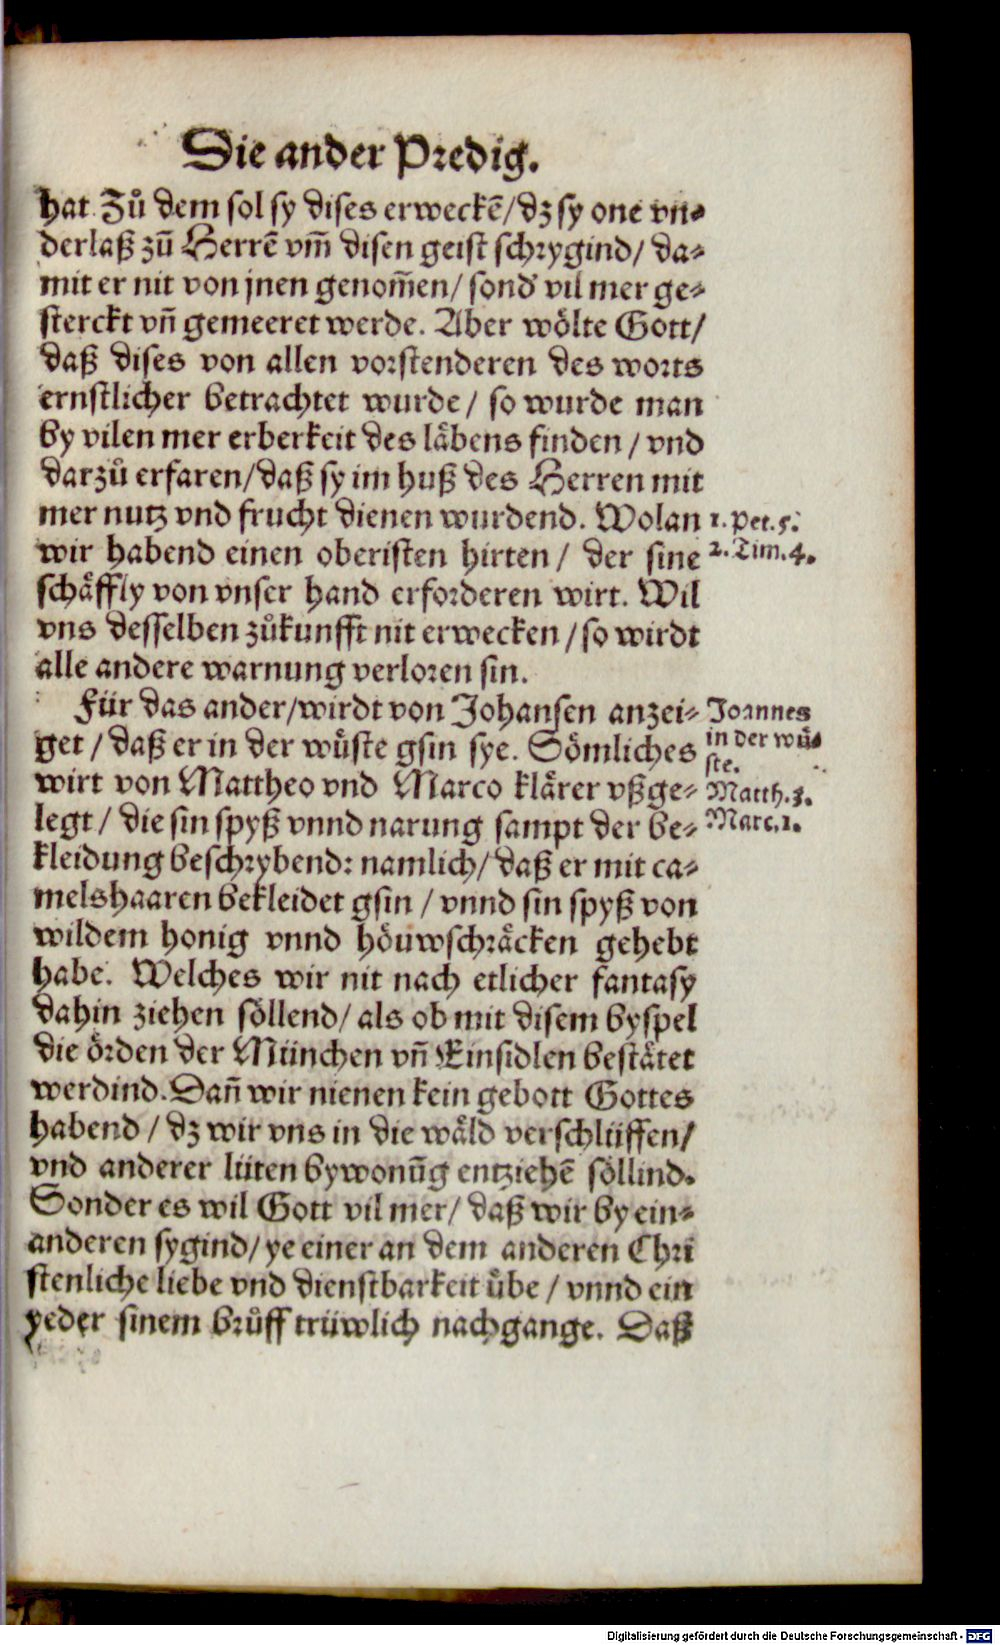 Die ander Predig.
hat. Zů dem sol sy dises erweckē/ dz sy one vn⸗
derlaß zū Herrē vm̄ disen geist schrygind/ da⸗
mit er nit von jnen genom̄en/ sond' vil mer ge⸗
sterckt vn̄ gemeeret werde. Aber wölte Gott/
daß dises von allen vorstenderen des worts
ernstlicher betrachtet wurde/ so wurde man
by vilen mer erberkeit des läbens finden/ vnd
darzů erfaren/ daß sy im huß des Herren mit
mer nutz vnd frucht dienen wurdend. Wolan
1. Pet. 5.
wir habend einen oberisten hirten/ der sine
2. Tim. 4.
schäffly von vnser hand erforderen wirt. Wil
vns desselben zůkunfft nit erwecken/ so wirdt
alle andere warnung verloren sin.
Für das ander/ wirdt von Johansen anzei⸗
Joannes
get/ daß er in der wüste gsin sye. Sömliches
in der wü⸗
ste.
wirt von Mattheo vnd Marco klärer vßge⸗
Matth. 3.
legt/ die sin spyß vnnd narung sampt der be⸗
Marc. 1.
kleidung beschrybend: namlich/ daß er mit ca⸗
melshaaren bekleidet gsin/ vnnd sin spyß von
wildem honig vnnd höuwschräcken gehebt
habe. Welches wir nit nach etlicher fantasy
dahin ziehen söllend/ als ob mit disem byspel
die örden der München vn̄ Einsidlen bestätet
werdind. Dan̄ wir nienen kein gebott Gottes
habend/ dz wir vns in die wäld verschlüffen/
vnd anderer lüten bywonūg entziehē söllind.
Sonder es wil Gott vil mer/ daß wir by ein⸗
anderen sygind/ ye einer an dem anderen Chri
stenliche liebe vnd dienstbarkeit übe/ vnnd ein
yeder sinem brůff trüwlich nachgange. Daß
Digitalisierung gefördert durch die Deutsche Forschungsgemeinschaft - DFG